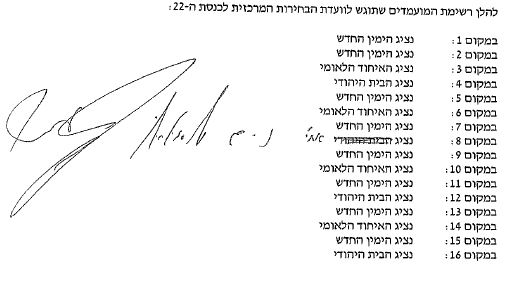 להלן רשימת המועמדים שתוגש לוועדת הבחירות המרכזית לכנסת ה-22:
במקום 1: נציג הימין החדש
במקום 2: נציג הימין החדש
במקום 3: נציג האיחוד הלאומי
במקום 4: נציג הבית היהודי
במקום 5: נציג הימין החדש
במקום 6: נציג האיחוד הלאומי
במקום 7: נציג הימין החדש
במקום 8: נציג הבית היהודי
במקום 9: נציג הימין החדש
במקום 10: נציג האיחוד הלאומי
במקום 11: נציג הימין החדש
במקום 12: נציג הבית היהודי
במקום 13: נציג הימין החדש
במקום 14: נציג האיחוד הלאומי
במקום 15: נציג הימין החדש
במקום 16: נציג הבית היהודי